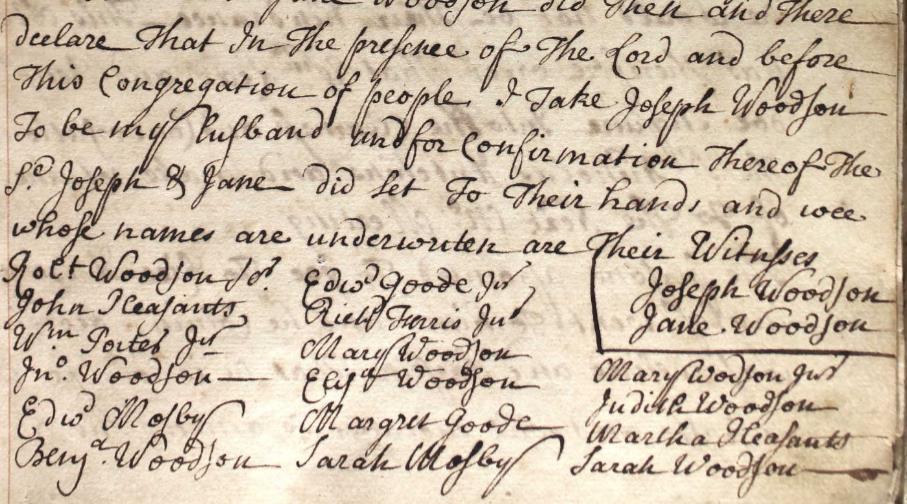 Jane Woodson did then and there
declare that In the presence of the Lord and before
this Congregation of people I take Joseph Woodson
to be my husband and for Confirmation thereof the
Sd Joseph & Jane did set to their hands and wee
whose names are underwriten are their Witnesses
Robt Woodson Sor
John Pleasants
Wm Porter Jur
Jno. Woodson
Edwd Mosby
Benja. Woodson
Edwd Goode Jur
Richd Ferris Jur
Mary Woodson
Eliza Woodson
Margret Goode
Sarah Mosby
Joseph Woodson
Jane Woodson
Mary Wodson Jur
Judith Woodson
Martha Pleasants
Sarah Woodson